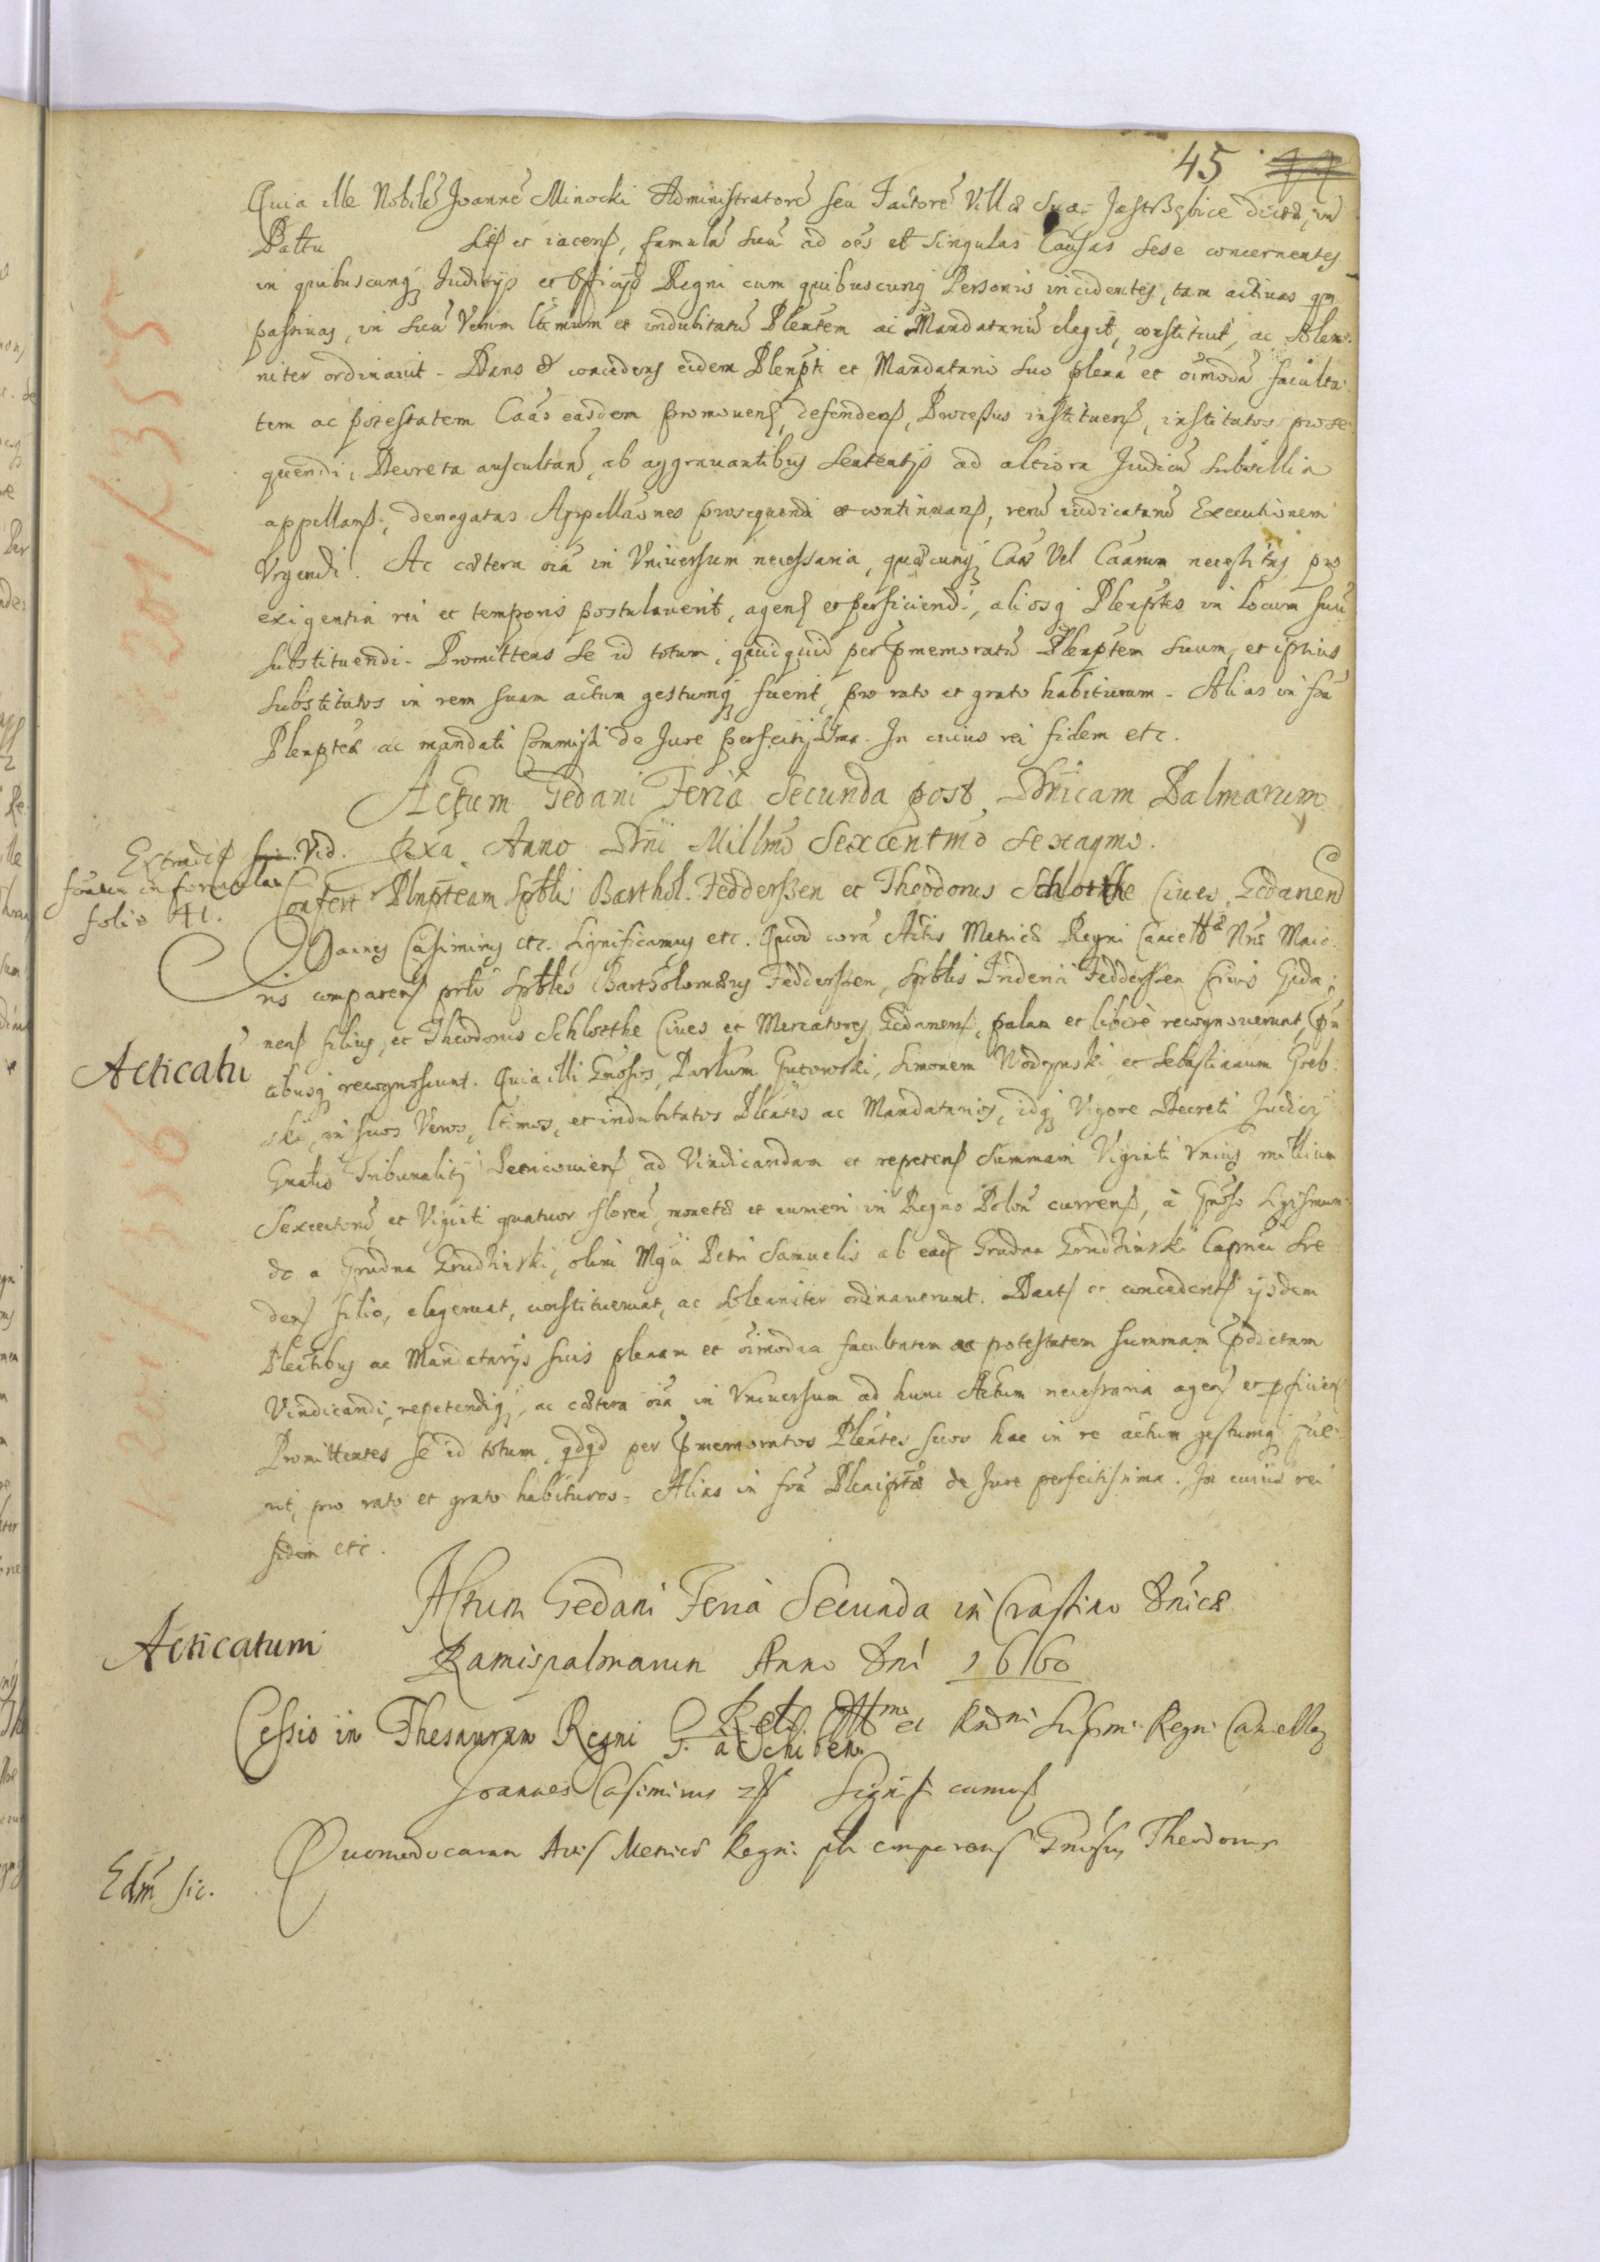 45
Quia ille Nobilẽ Joannẽ Minocki Administratorẽ seu Factorẽ Villæ Suæ Jastrzębice dictæ, in
Pattu Sitt et iacens, famulũ suũ ad oẽs et singulas Causas sese concernentes
in quibuscunq Judicijs et Officijs Regni cum quibuscunq Personis incidentes, tam activas qm
passivas, in suũ Verum ltimum et indubitatũ Plentem ac Mandatariũ elegit, constituit, ac Solen-
niter ordinavit. Dans et concedens eidem Plenpti et Mandatario suo plenã et oimodã faculta-
tem ac potestatem Caas easdem promovend, defendend, Processus instituend, institutos prose-
quendi, Decreta auscultand, ab aggravantibus Sententijs ad altiora Judicia subsellia
appelland, denegatas Appellaõnes prosequendi et continuand, rerũ iudicatarũ Executionem
Vrgendi. Ac cætera oia in Vniversum necessaria, quæcunq Caa Vel Caarum necessitas pro
exigentia rei et temporis postulaverit, agend et perficiendi, aliosq Plenptes in Locum suũ
substituendi. Promittens se id totum, quidquid per pmemoratũ Plenptem suum, et ipsius
substitutos in rem suam actum gestumq fuerit, pro rato et grato habiturum. Alias in frã
Plenptæ ac mandati Commissi de Jure perfectissima. In cuius rei fidem etc.
Actum Gedani Feria Secunda post Dnicam Palmarum
Pxa Anno Dni Millmo Sexcentmo Sexagmo.
Extradit sic. Vid.
formam in formular
folio 41.
Confert Plnpteam Spblis Barthol. Fedderssen et Theodorus Schlotthe Cives Gedanens
Joannes Casimirus etc. Significamus etc. Quod corã Actis Metricæ Regni Cancellæ Nræ Maio-
ris comparens prlr Spbles Bartholomæus Fedderssen, Spblis Friderici Fedderssen Civis Geda-
nens filius, et Theodorus Schlotthe Cives et Mercatores Gedanens, palam et liberè recognoverunt, pn
tibusq recognoscunt. Quia illi Gnosos, Paulum Gutowski, Simonem Wodzynski et Sebastianum Greb-
Acticatũ
ski, in suos Veros, ltimos, et indubitatos Plentes ac Mandatarios, idq Vigore Decreti Judicij
Gnalis Tribunalitij Petricoviens ad Vindicandam et repetend Summam Viginti Vnius millium
Sexcentorũ et Viginti quatuor florenũ, monetæ et numeri in Regno Polon currens, à Gnoso Sigismun-
do a Grudna Grudzinski, olim Mgci Petri Samuelis ab eads Grudna Grudzinski Capnei Sre-
dens filio, elegerunt, constituerunt, ac Solenniter ordinaverunt. Dants et concedents ijsdem
Plentibus ac Mandatarijs suis plenam et oimodam facultatem ac potestatem Summam pdictam
Vindicandi, repetendiq, ac cætera oia in Vniversum ad hunc Actum necessaria agend et pficiend
Promittentes se id totum, qdqd per pmemoratos Plentes suos hac in re actum gestumq fue-
rit, pro rato et grato habituros. Alias in frã Plenipotæ de Jure perfectissima. In cuius rei
fidem etc.
Actum Gedani Feria Secunda in Crastino Dnicæ
Acticatum
Ramispalmarum Anno Dni 1660
Cessio in Thesaurum Regni G. a Schiben. Rel. Illmi et Rndmi Supmi Regni Cancelly
Joannes Casimirus etc Significamus
Quomodo coram Actis Metricæ Regni plr comparens Gnosus Theodorus
Edm sic.